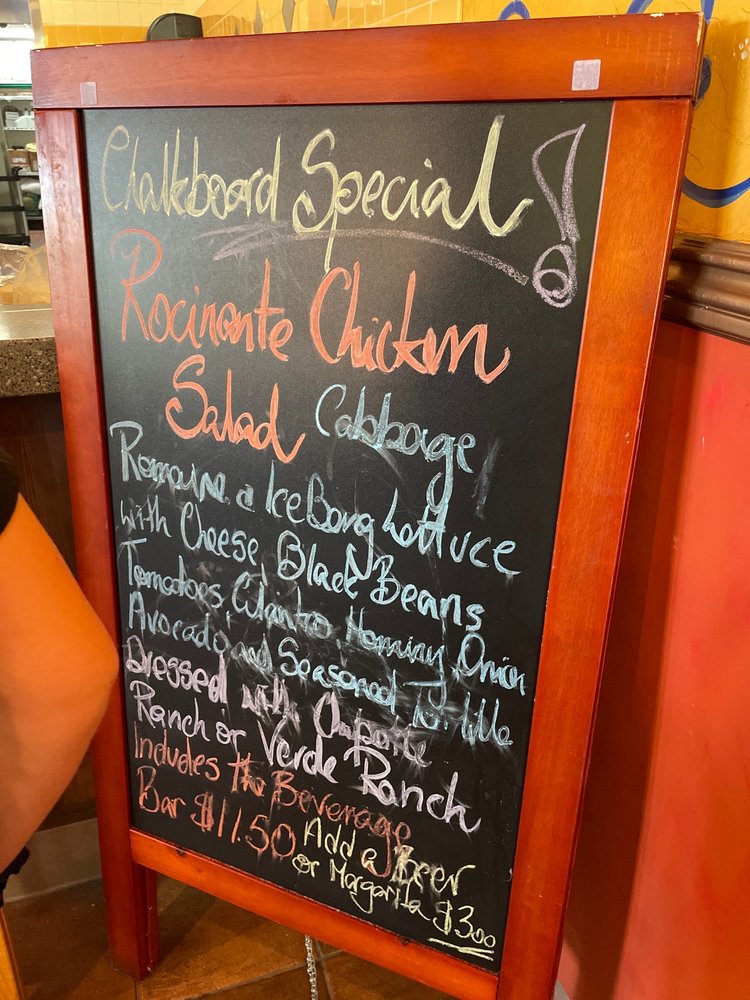 Chalkboard Special!
Rocinante Chicken
Salad Cabbage
Romaine & IceBerg Lettuce
with Cheese Black Beans
Tomatoes Cilantro Hominy Onion
Avocado and Seasoned Tortilla
Dressed with Chipotle
Ranch or Verde Ranch
Includes the Beverage
Bar $11.50 Add a Beer
or Margarita $3.00